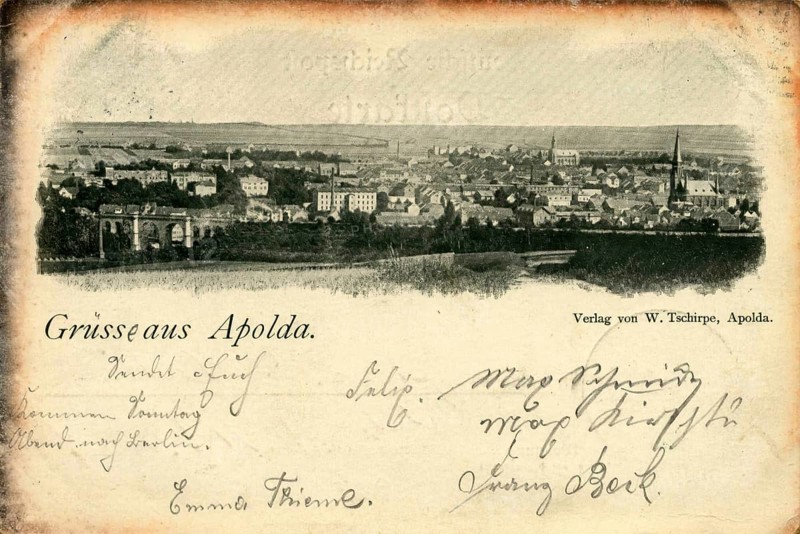 Grüsse aus Apolda.
Verlag von W. Tschirpe, Apolda.
Sendet Euch
Felix.
Max Schmidt
Kommen Sonntag
Max
Abend nach Berlin.
Emma Thieme.
Franz Beck.